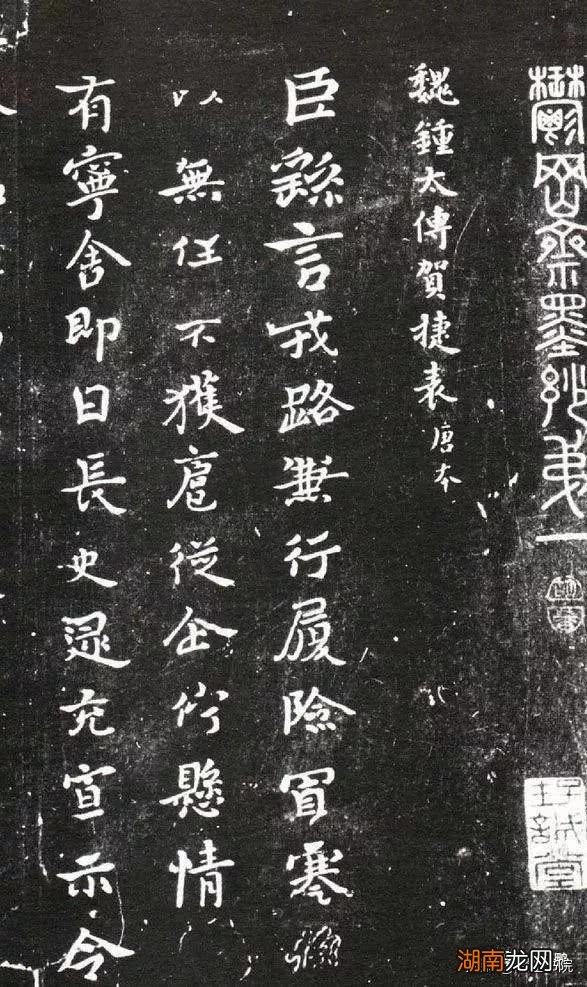 鬱岡齋墨妙弟一
魏鍾太傅賀捷表 唐本
臣繇言戎路兼行履險冒寒
以無任不獲扈從企佇懸情
有寧舍即日長史逯充宣示令
湖南龙网